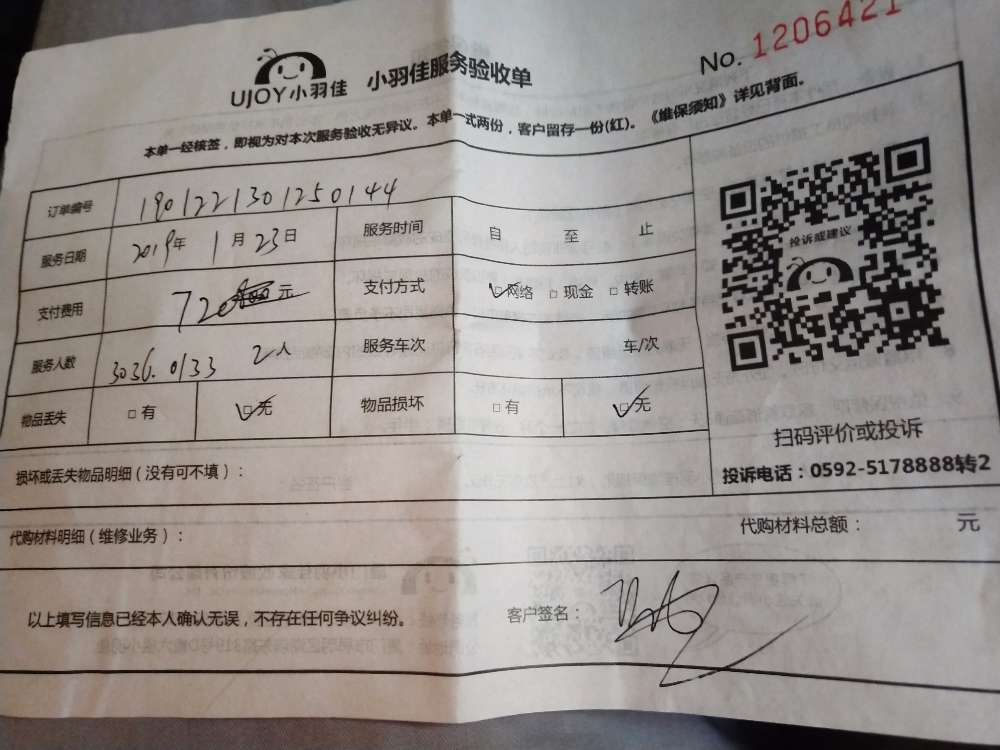 UJOY小羽佳 小羽佳服务验收单
No. 1206421
本单一经核签，即视为对本次服务验收无异议。本单一式两份，客户留存一份(红)。《维保须知》详见背面。
订单编号 1901221301250144
服务日期 2019年 1月23日 服务时间 自 至 止
支付费用 720 元 支付方式 ☑网络 □现金 □转账
服务人数 3036.0133 2人 服务车次 车/次
物品丢失 □有 ☑无 物品损坏 □有 ☑无
投诉或建议
扫码评价或投诉
投诉电话：0592-5178888转2
损坏或丢失物品明细（没有可不填）：
代购材料明细（维修业务）： 代购材料总额： 元
以上填写信息已经本人确认无误，不存在任何争议纠纷。 客户签名：